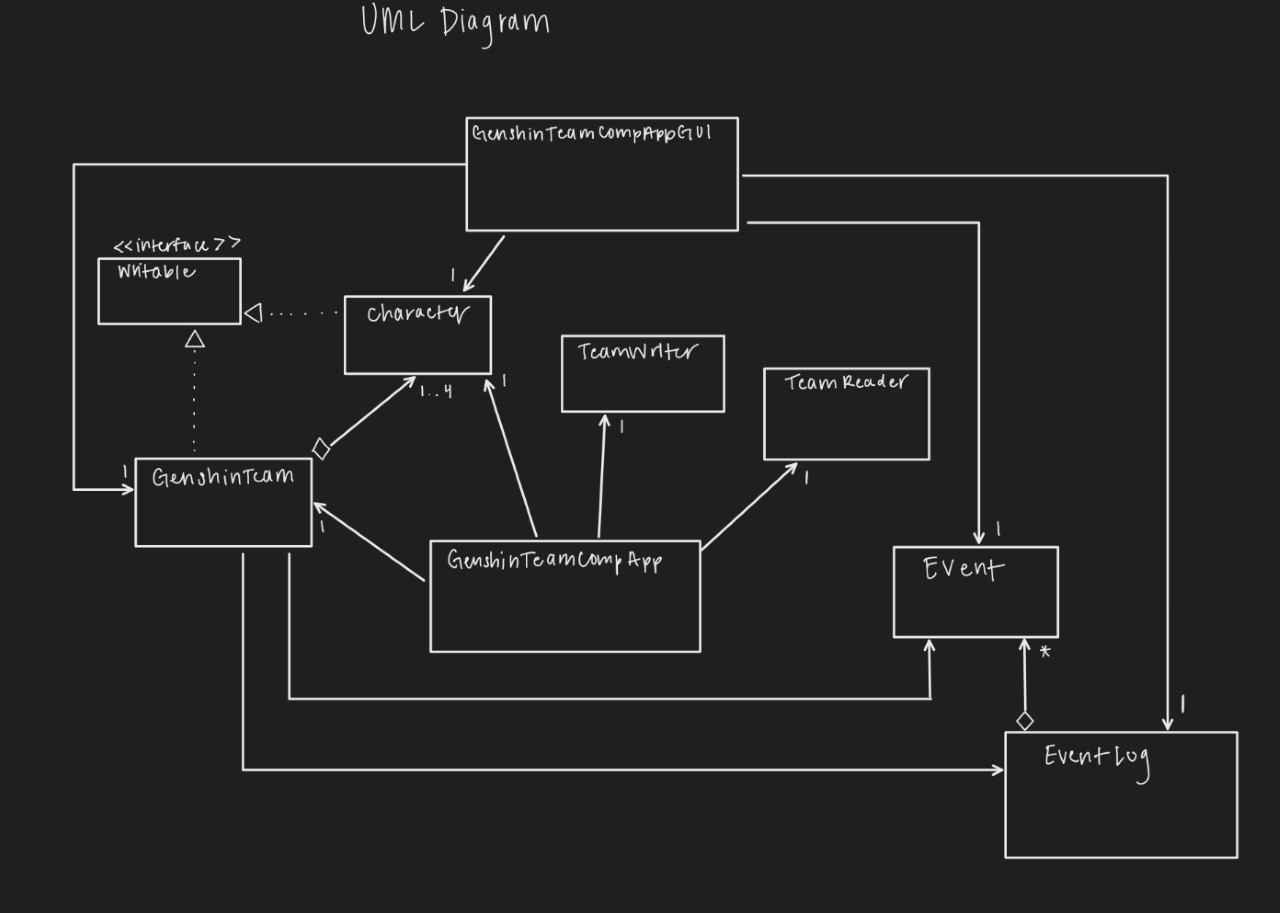 UML Diagram
GenshinTeamCompAppGUI
<<interface>>
Writable
1
Character
TeamWriter
TeamReader
1..4
1
1
1
GenshinTeam
1
1
1
GenshinTeamCompApp
Event
*
1
EventLog